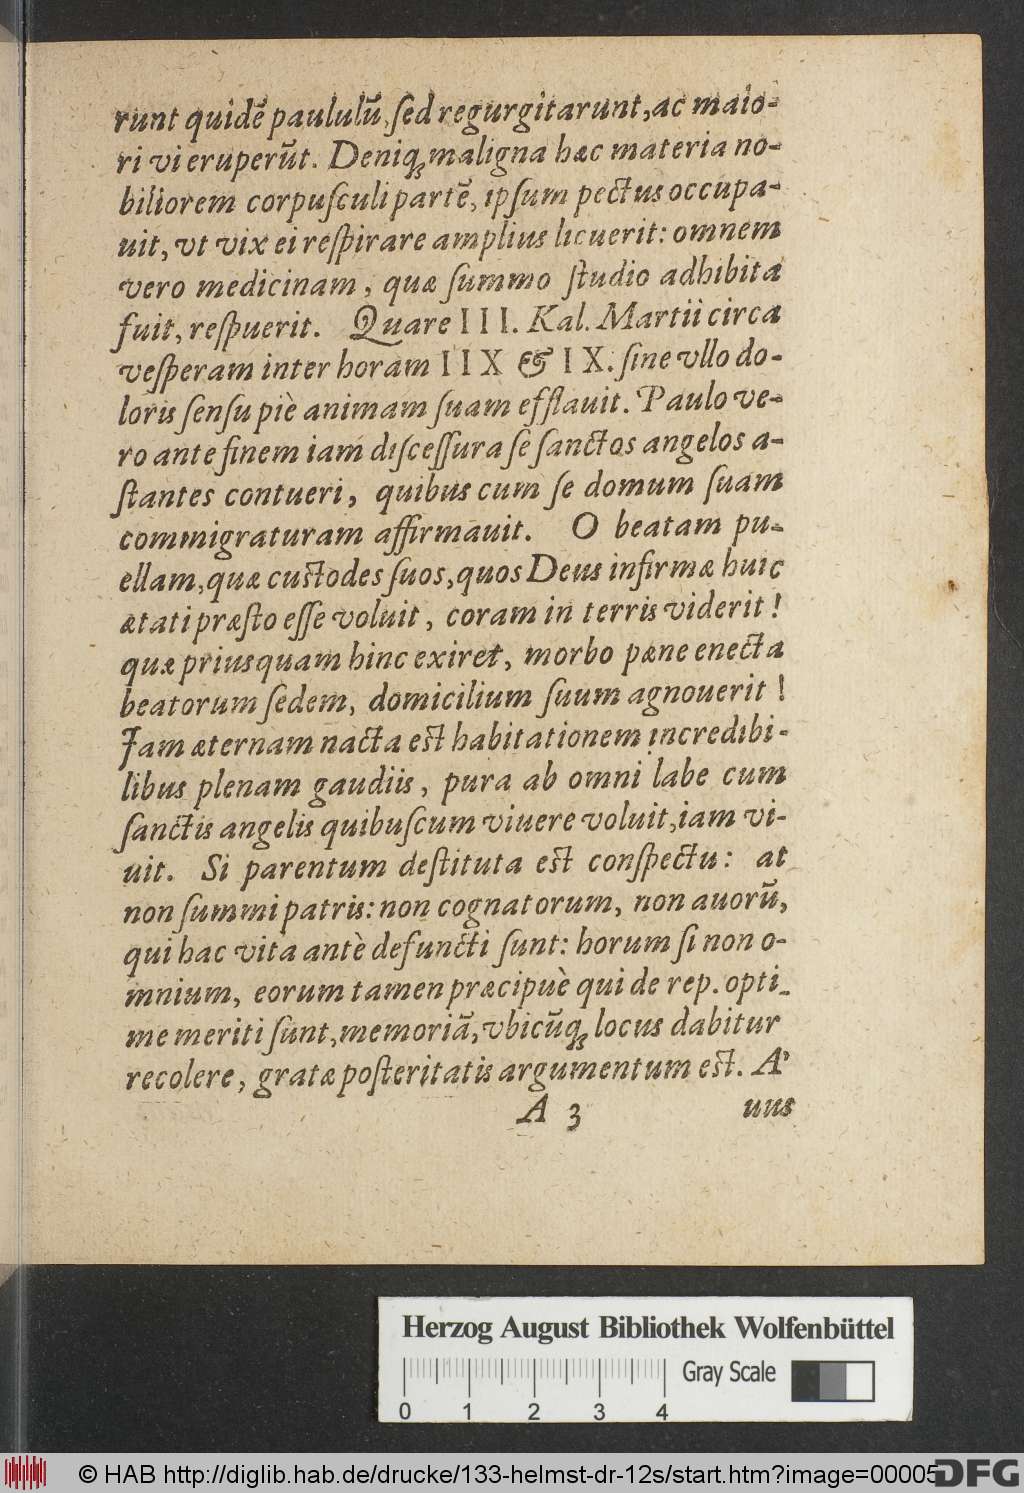 runt quidẽ paululũ, ſed regurgitarunt, ac maio-
ri vi eruperũt. Deniqꝫ maligna hæc materia no-
biliorem corpuſculi partẽ, ipſum pectus occupa-
uit, vt vix ei reſpirare amplius licuerit: omnem
vero medicinam, quæ ſummo ſtudio adhibita
fuit, reſpuerit. Quare III. Kal. Martii circa
veſperam inter horam IIX & IX. ſine vllo do-
loris ſenſu piè animam ſuam efflauit. Paulo ve-
ro ante finem iam diſceſſura ſe ſanctos angelos a-
ſtantes contueri, quibus cum ſe domum ſuam
commigraturam affirmauit. O beatam pu-
ellam, quæ cuſtodes ſuos, quos Deus infirmæ huic
ætati præſto eſſe voluit, coram in terris viderit!
quæ priusquam hinc exiret, morbo pæne enecta
beatorum ſedem, domicilium ſuum agnouerit!
Jam æternam nacta eſt habitationem incredibi-
libus plenam gaudiis, pura ab omni labe cum
ſanctis angelis quibuſcum viuere voluit, iam vi-
uit. Si parentum deſtituta eſt conſpectu: at
non ſummi patris: non cognatorum, non auorũ,
qui hac vita antè defuncti ſunt: horum ſi non o-
mnium, eorum tamen præcipuè qui de rep. opti-
me meriti ſunt, memoriã, vbicũqꝫ locus dabitur
recolere, gratæ poſteritatis argumentum eſt. A'
A 3 uus
Herzog August Bibliothek Wolfenbüttel
Gray Scale
0 1 2 3 4
© HAB http://diglib.hab.de/drucke/133-helmst-dr-12s/start.htm?image=00005
DFG